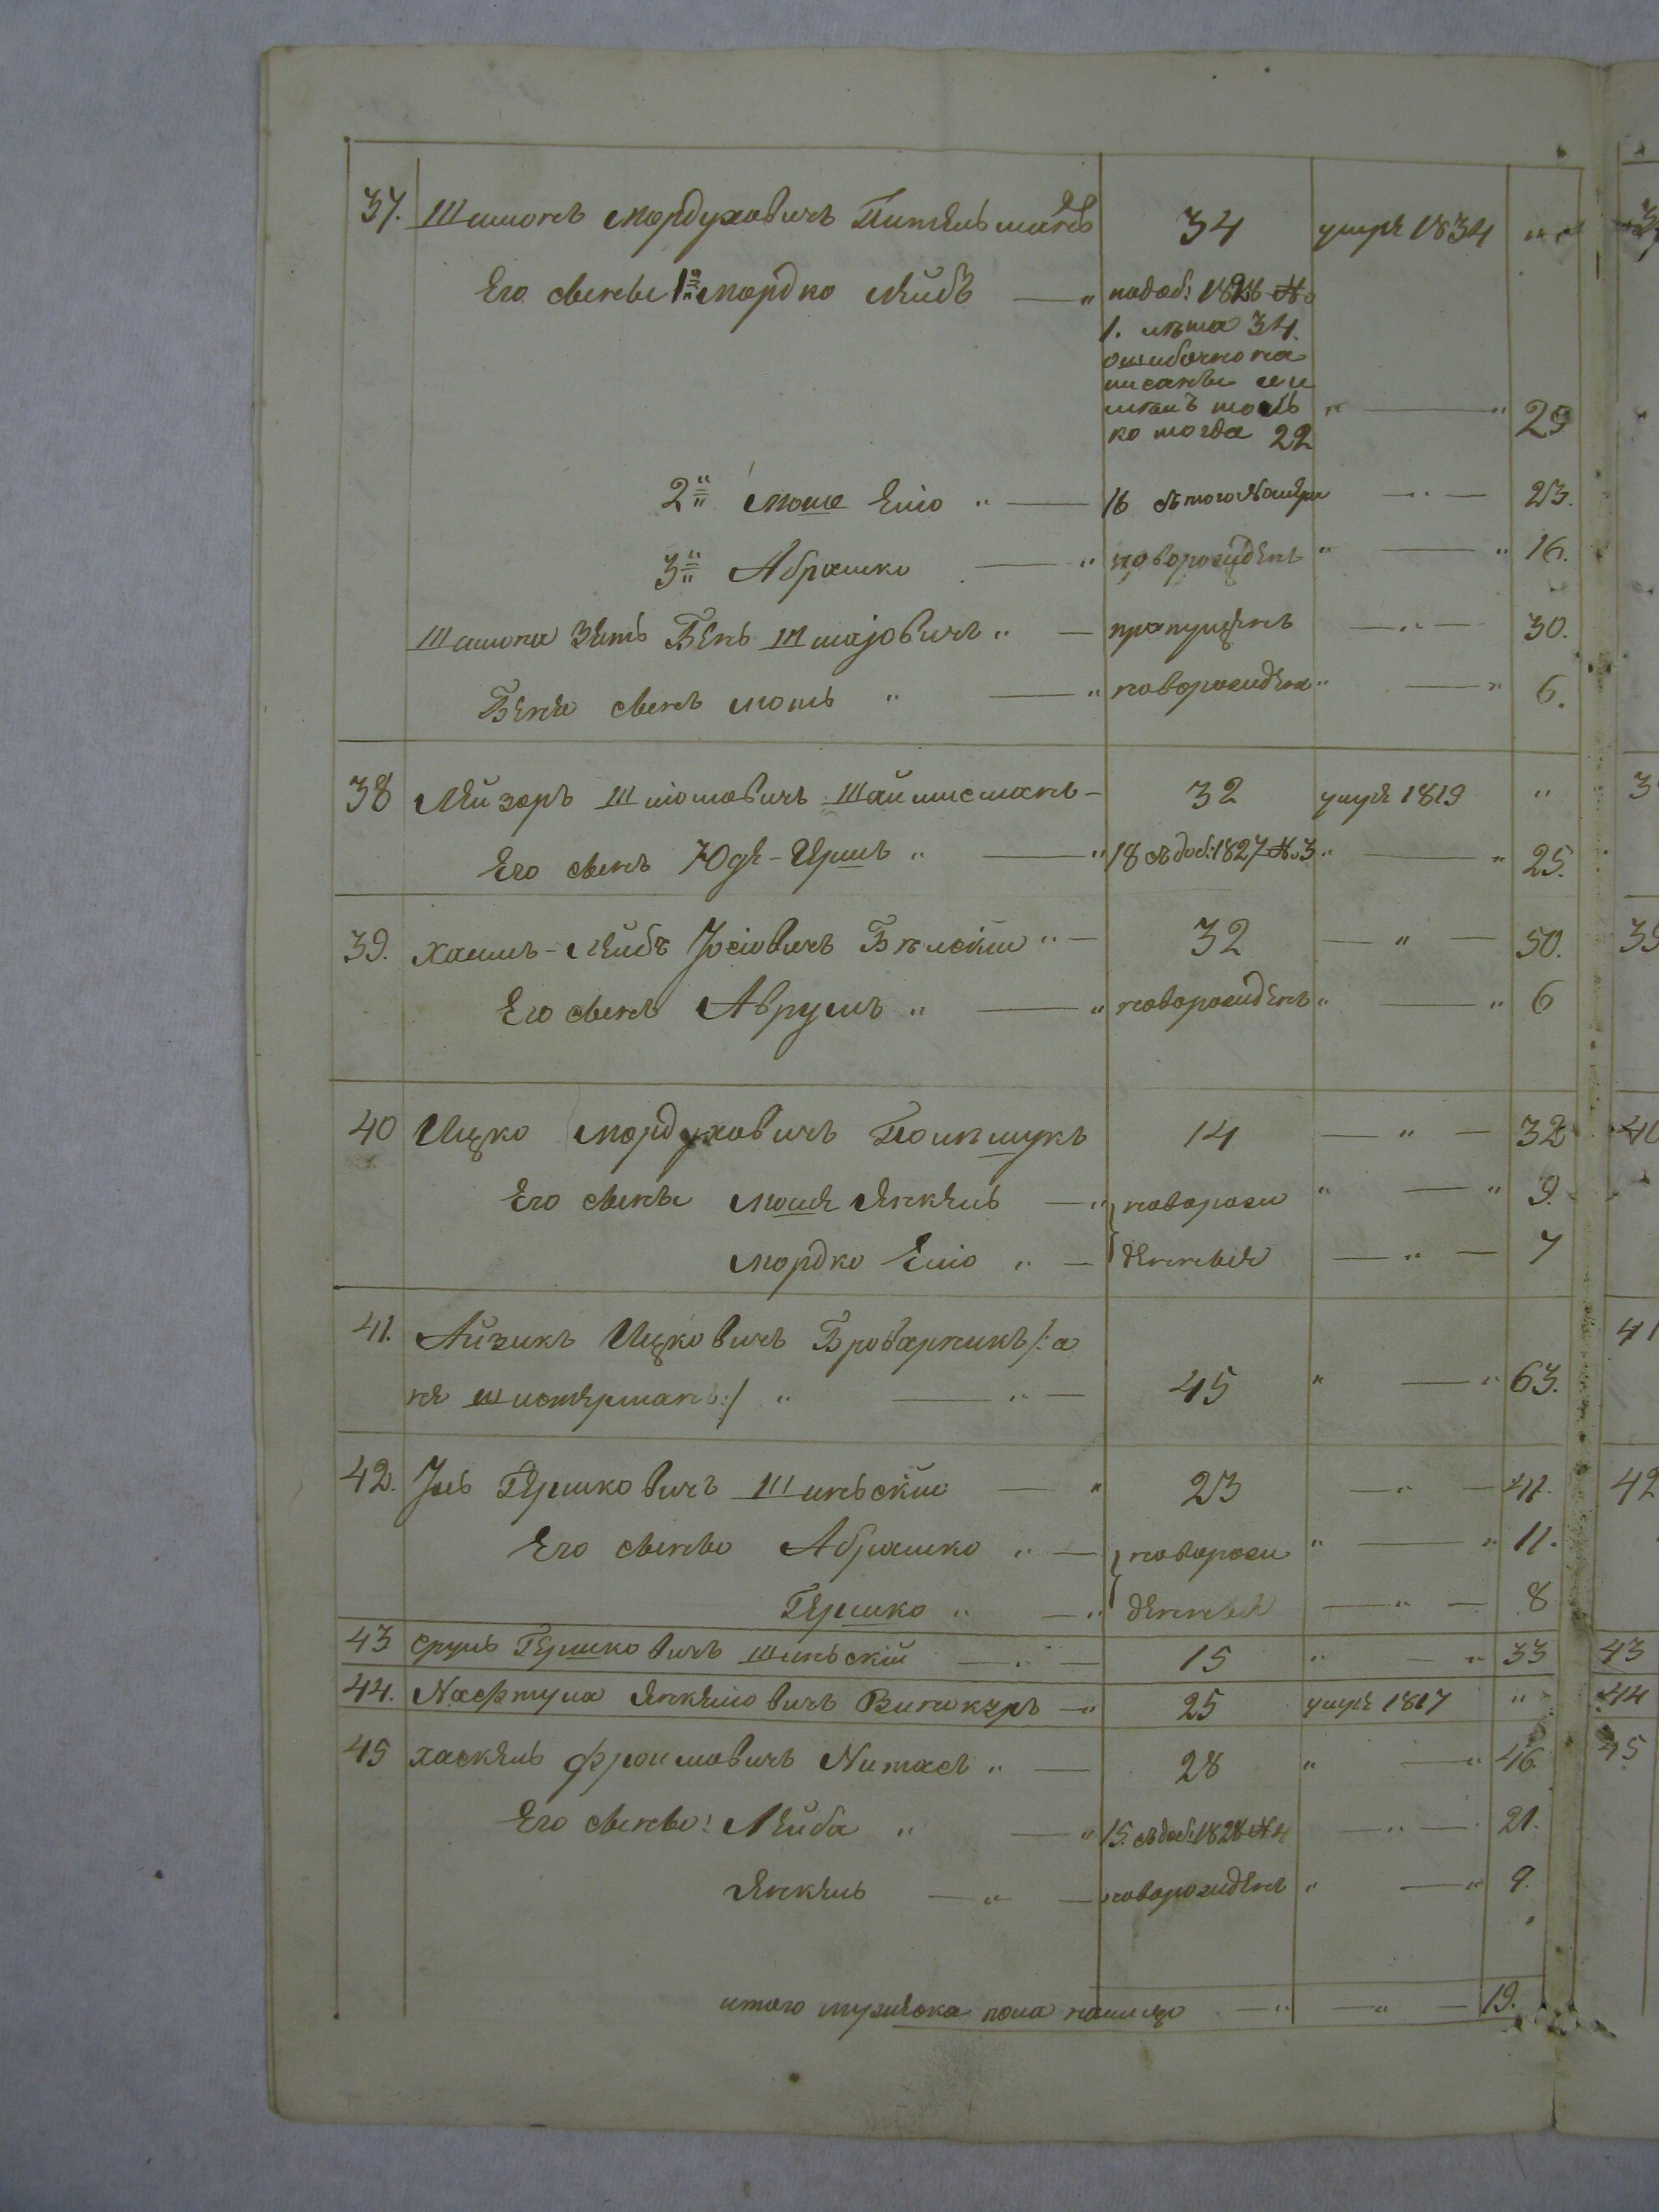 37. Шлиомъ Мордуховичъ Пительманъ 34 умре 1834 "
Его сыны 1й Мордко Лейбъ — " подоб: 1828 №
1. лѣта 34.
ошибочно на
писаны и и
мѣлъ толь " — "
ко тогда 22 29
2й Моше Еліо " — 16 съ того № — " — 23.
3й Абрашко — " новорожденъ " — " 16.
Шлиома зять Бенъ Шмаjовичъ " — пропущенъ — " — 30.
Бенe сынъ Мотъ " — " новорожденъ " — " 6.
38 Лейзоръ Шліомовичъ Шаймисманъ — 32 умре 1819 "
Его сынъ Юде-Ершъ " — " 18 съ доб: 1827 № 3 " — " 25.
39. Хаимъ-Лейбъ Јосіовичъ Бѣлскій " — 32 — " — 50.
Его сынъ Аврумъ " — " новорожденъ " — " 6
40 Ицко Мордуховичъ Полѣщукъ 14 — " — 32
Его сыны Мошя Янкель — " новорож " — " 9.
Мордко Еліо " — денные — " — 7
41. Айзикъ Ицковичъ Броварникъ /: а
не Шистерманъ :/ " — " — 45 " — " 63.
42. Јуль Гершковичъ Шинскій — " 23 — " — 41.
Его сыновъ Абрашко " — новорож " — " 11.
Гершко " — " денные — " — 8
43 Сруль Гершковичъ Шинскій — " — 15 " — " 33
44. Nафтула Янкеліовичъ Винокуръ — " 25 умре 1817 "
45 Хаскель Фроимовичъ Nитасъ " — 28 " — " 46
Его сыновъ: Лейба " — " 15. съ доб: 1828 № 4 — " — 21.
Янкель — " — новорожденъ " — " 9.
итого мужеска пола налицо — " — " — 19.